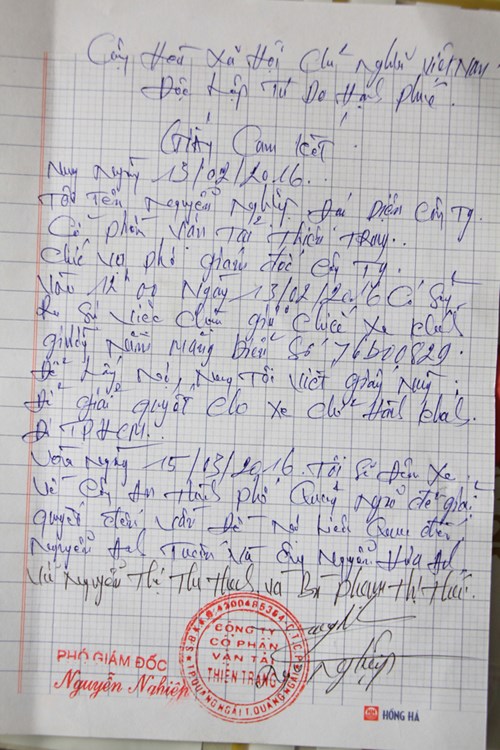 Cộng Hoà Xã Hội Chủ Nghĩa Việt Nam
Độc Lập Tự Do Hạnh Phúc.
Giấy Cam Kết.
Nay Ngày 13/02/2016.
Tôi Tên Nguyễn Nghiệp. Đại Diện Công Ty.
Cổ phần Vận Tải Thiên Trang.
Chức vụ phó giám đốc Công Ty.
Vào 12h00 Ngày 13/02/2016 Có
Sự Việc giữ Chiếc Xe khách
giường Nằm Mang Biển Số 76B00829.
Nay Tôi Viết giấy Này.
Để giải quyết Cho Xe Chở Hành khách
Đi TPHCM.
Vào Ngày 15/03/2016 Tôi Sẽ Đến
Về Công An Thành phố Quảng Ngãi để giải
quyết đến Vấn Đề Nợ Liên Quan đến
Nguyễn Anh Tuấn Và Ông Nguyễn
Và Nguyễn Thị Thu và Bà Phạm Thị
PHÓ GIÁM ĐỐC
Nguyễn Nghiệp
CÔNG TY
CỔ PHẦN
VẬN TẢI
THIÊN TRANG
TP.QUẢNG NGÃI T.QUẢNG NGÃI
Nghiệp
HỒNG HÀ